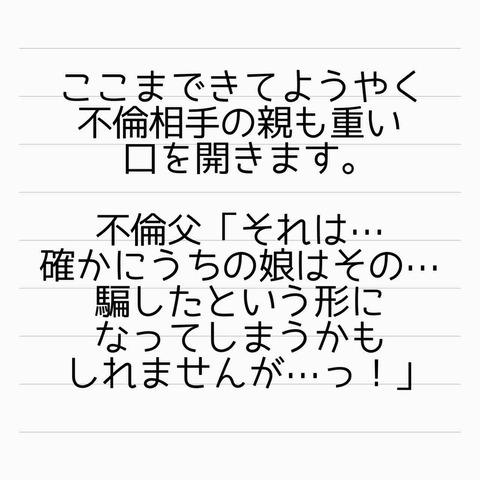 ここまできてようやく
不倫相手の親も重い
口を開きます。
不倫父「それは…
確かにうちの娘はその…
騙したという形に
なってしまうかも
しれませんが…っ！」